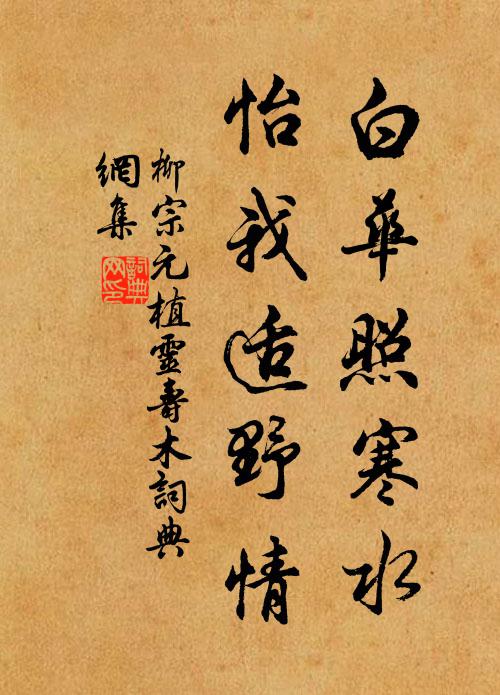 白華照寒水
怡我适野情
柳宗元植靈壽木詞典
網集
詞典
网印